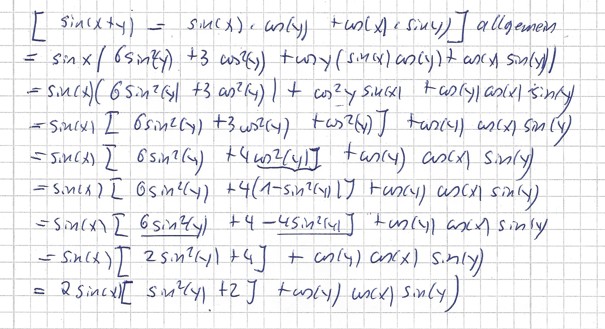 [ sin(x+y) = sin(x) · cos(y) + cos(x) · sin(y) ] allgemein
= sin x ( 6 sin²(y) + 3 cos²(y) + cos y ( sin(x) cos(y) + cos(x) sin(y) )
= sin(x) ( 6 sin²(y) + 3 cos²(y) ) + cos² y sin(x) + cos(y) cos(x) sin(y)
= sin(x) [ 6 sin²(y) + 3 cos²(y) + cos²(y) ] + cos(y) cos(x) sin(y)
= sin(x) [ 6 sin²(y) + 4 cos²(y) ] + cos(y) cos(x) sin(y)
= sin(x) [ 6 sin²(y) + 4(1 - sin²(y)) ] + cos(y) cos(x) sin(y)
= sin(x) [ 6 sin²(y) + 4 - 4 sin²(y) ] + cos(y) cos(x) sin(y)
= sin(x) [ 2 sin²(y) + 4 ] + cos(y) cos(x) sin(y)
= 2 sin(x) [ sin²(y) + 2 ] + cos(y) cos(x) sin(y)